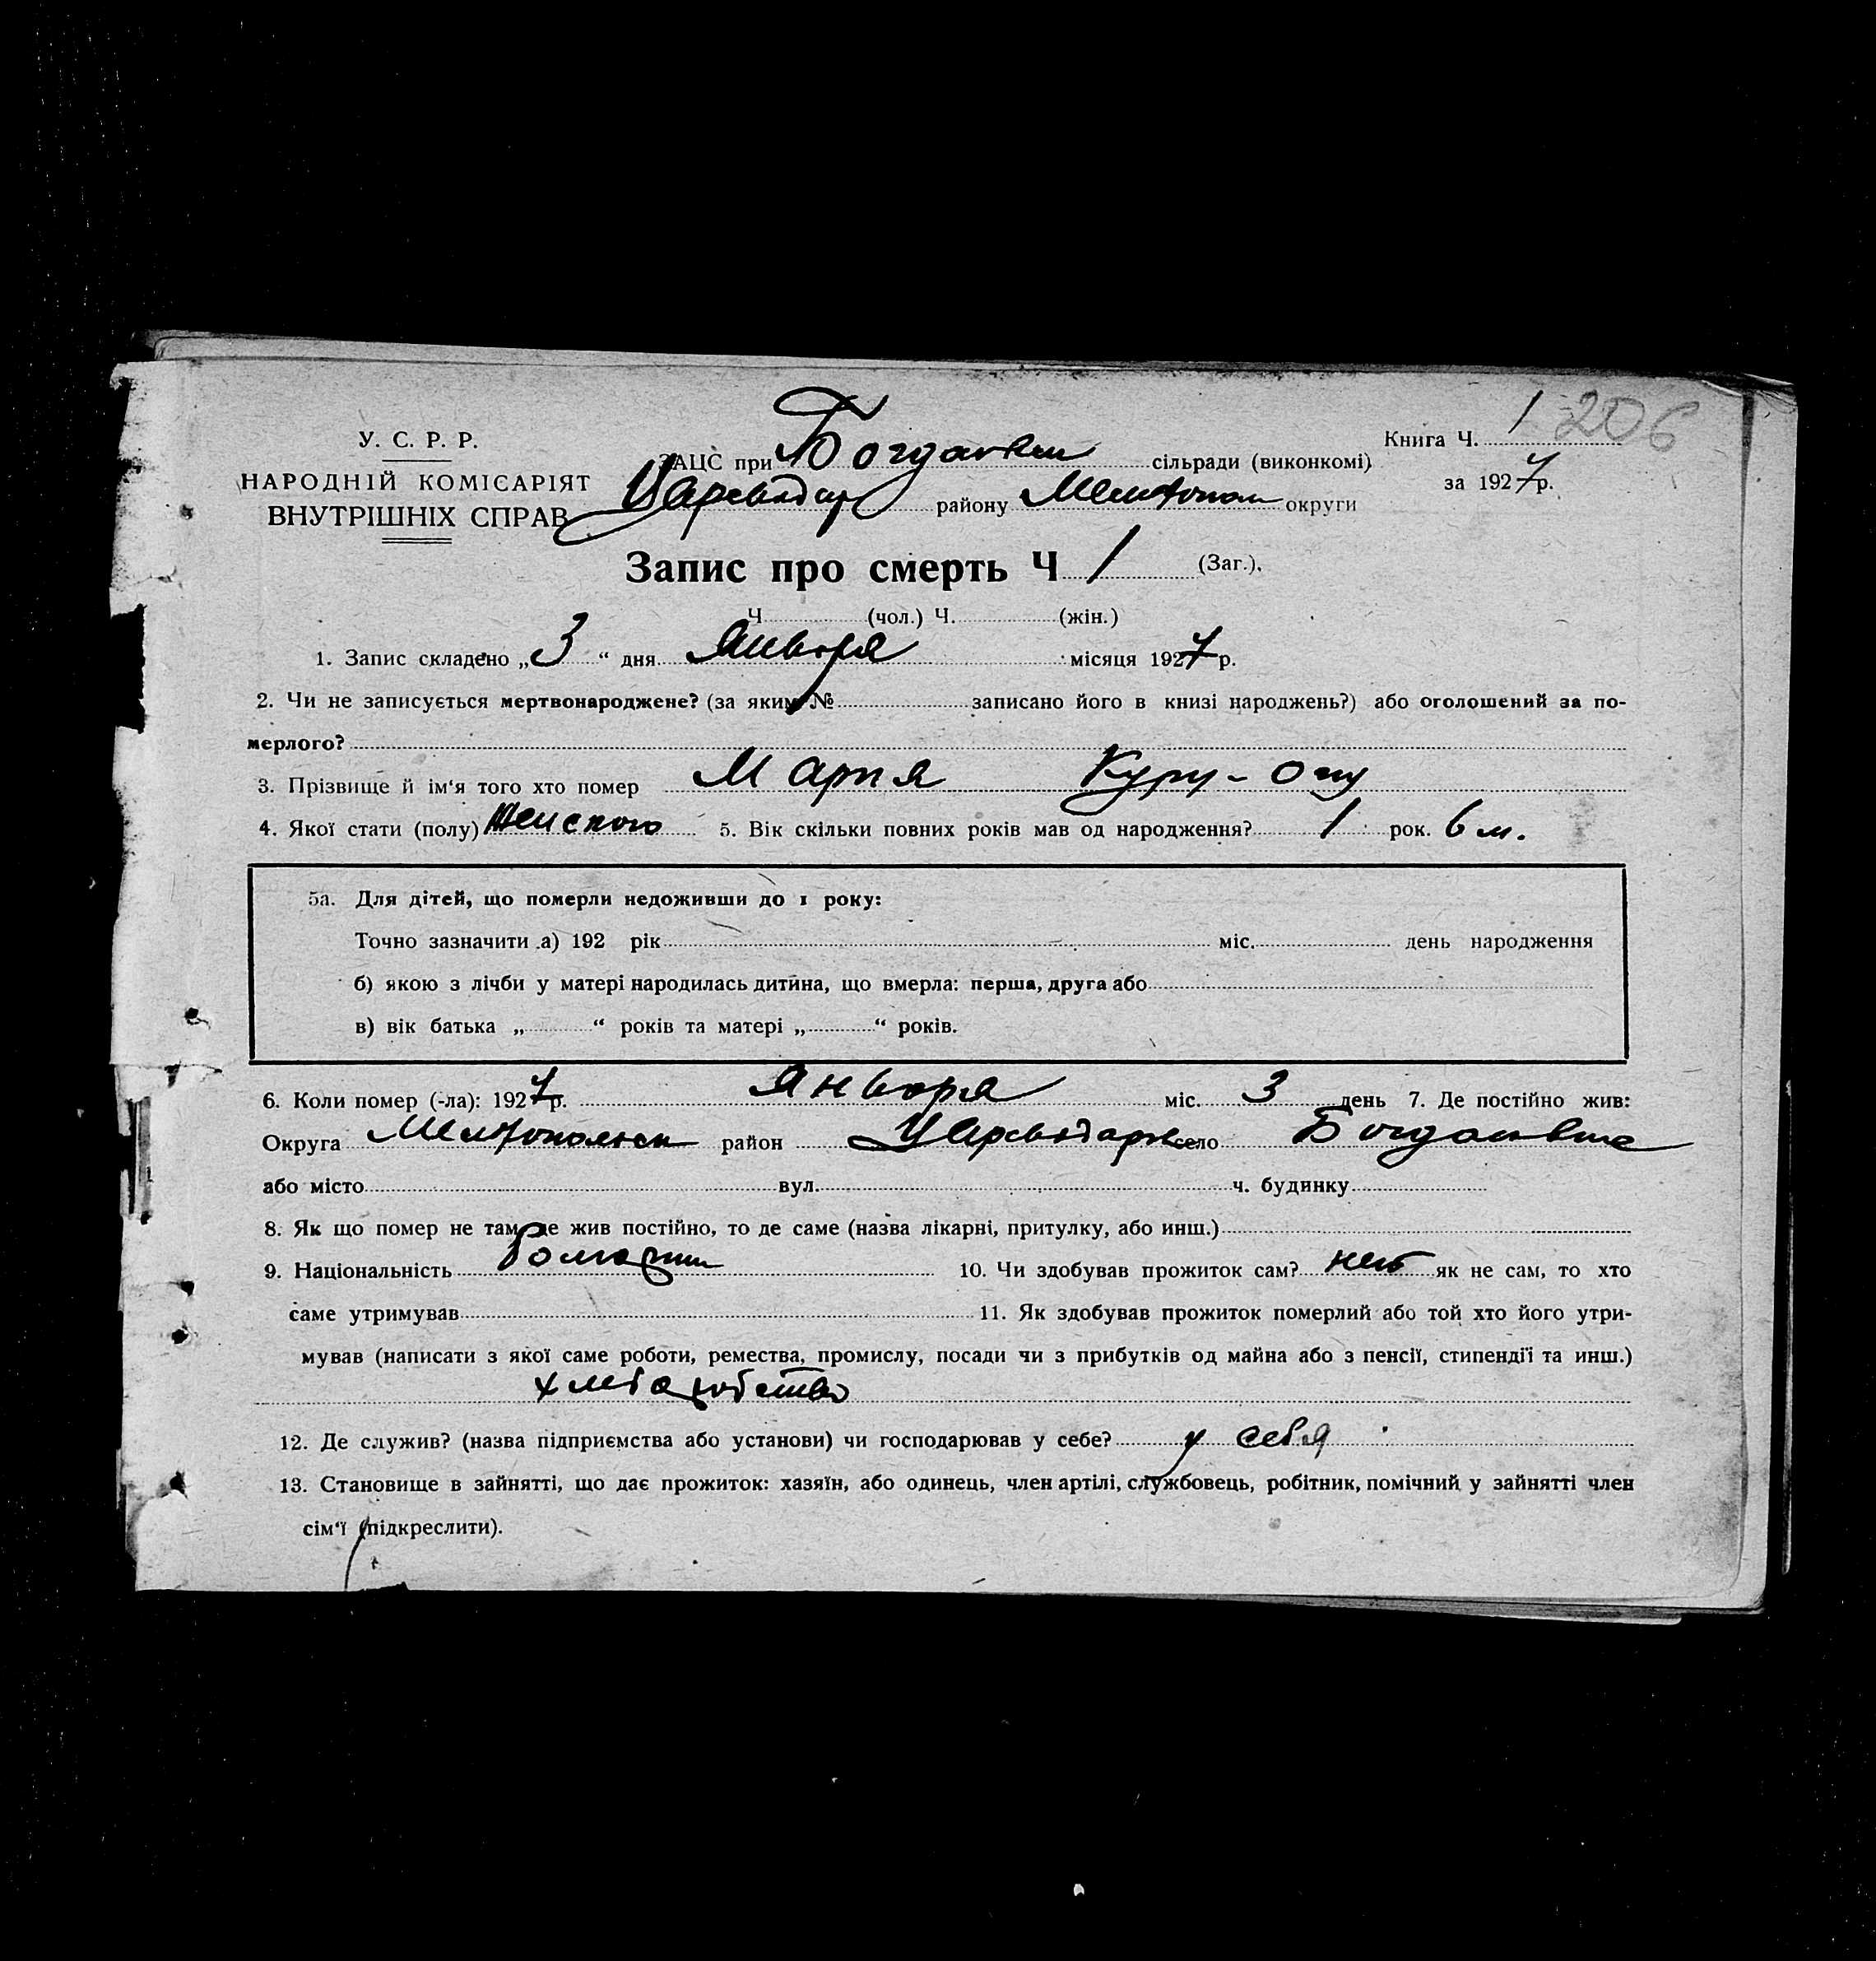 1 206
У. С. Р. Р.
НАРОДНІЙ КОМІСАРІЯТ
ВНУТРІШНІХ СПРАВ
ЗАЦС при Богдановки сільради (виконкомі)
Цареводар району Мелитопол округи
Книга Ч.
за 1927 р.
Запис про смерть Ч 1 (Заг.).
Ч (чол.) Ч. (жін.)
1. Запис складено „3“ дня Января місяця 1927 р.
2. Чи не записується мертвонароджене? (за яким № записано його в книзі народжень?) або оголошений за по-
мерлого?
3. Прізвище й ім'я того хто помер Мария Куру-Оглу
4. Якої стати (полу) Женского 5. Вік скільки повних років мав од народження? 1 рок. 6 м.
5а. Для дітей, що померли недоживши до 1 року:
Точно зазначити а) 192 рік міс. день народження
б) якою з лічби у матері народилась дитина, що вмерла: перша, друга або
в) вік батька „ “ років та матері „ “ років.
6. Коли помер (-ла): 1927 р. Января міс. 3 день 7. Де постійно жив:
Округа Мелитопольск район Цареводарск село Богдановка
або місто вул. ч. будинку
8. Як що помер не там де жив постійно, то де саме (назва лікарні, притулку, або инш.)
9. Національність Болгарин 10. Чи здобував прожиток сам? нет як не сам, то хто
саме утримував 11. Як здобував прожиток померлий або той хто його утри-
мував (написати з якої саме роботи, ремества, промислу, посади чи з прибутків од майна або з пенсії, стипендії та инш.)
хлебаробство
12. Де служив? (назва підприємства або установи) чи господарював у себе? у себя
13. Становище в зайнятті, що дає прожиток: хазяїн, або одинець, член артілі, службовець, робітник, помічний у зайнятті член
сім'ї (підкреслити).